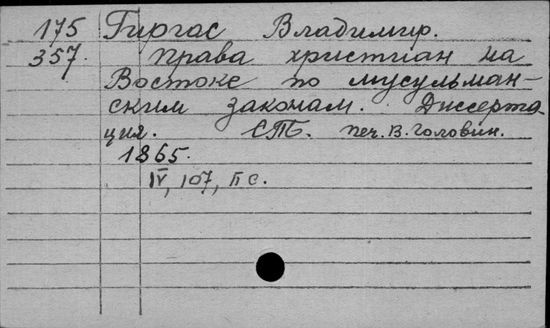 175 Гиргас Владимир.
357. Права христиан на
Востоке по мусульман-
ским законам. Диссерта
ция. СПБ. печ. В. Головин.
1865.
IV, 107, II с.